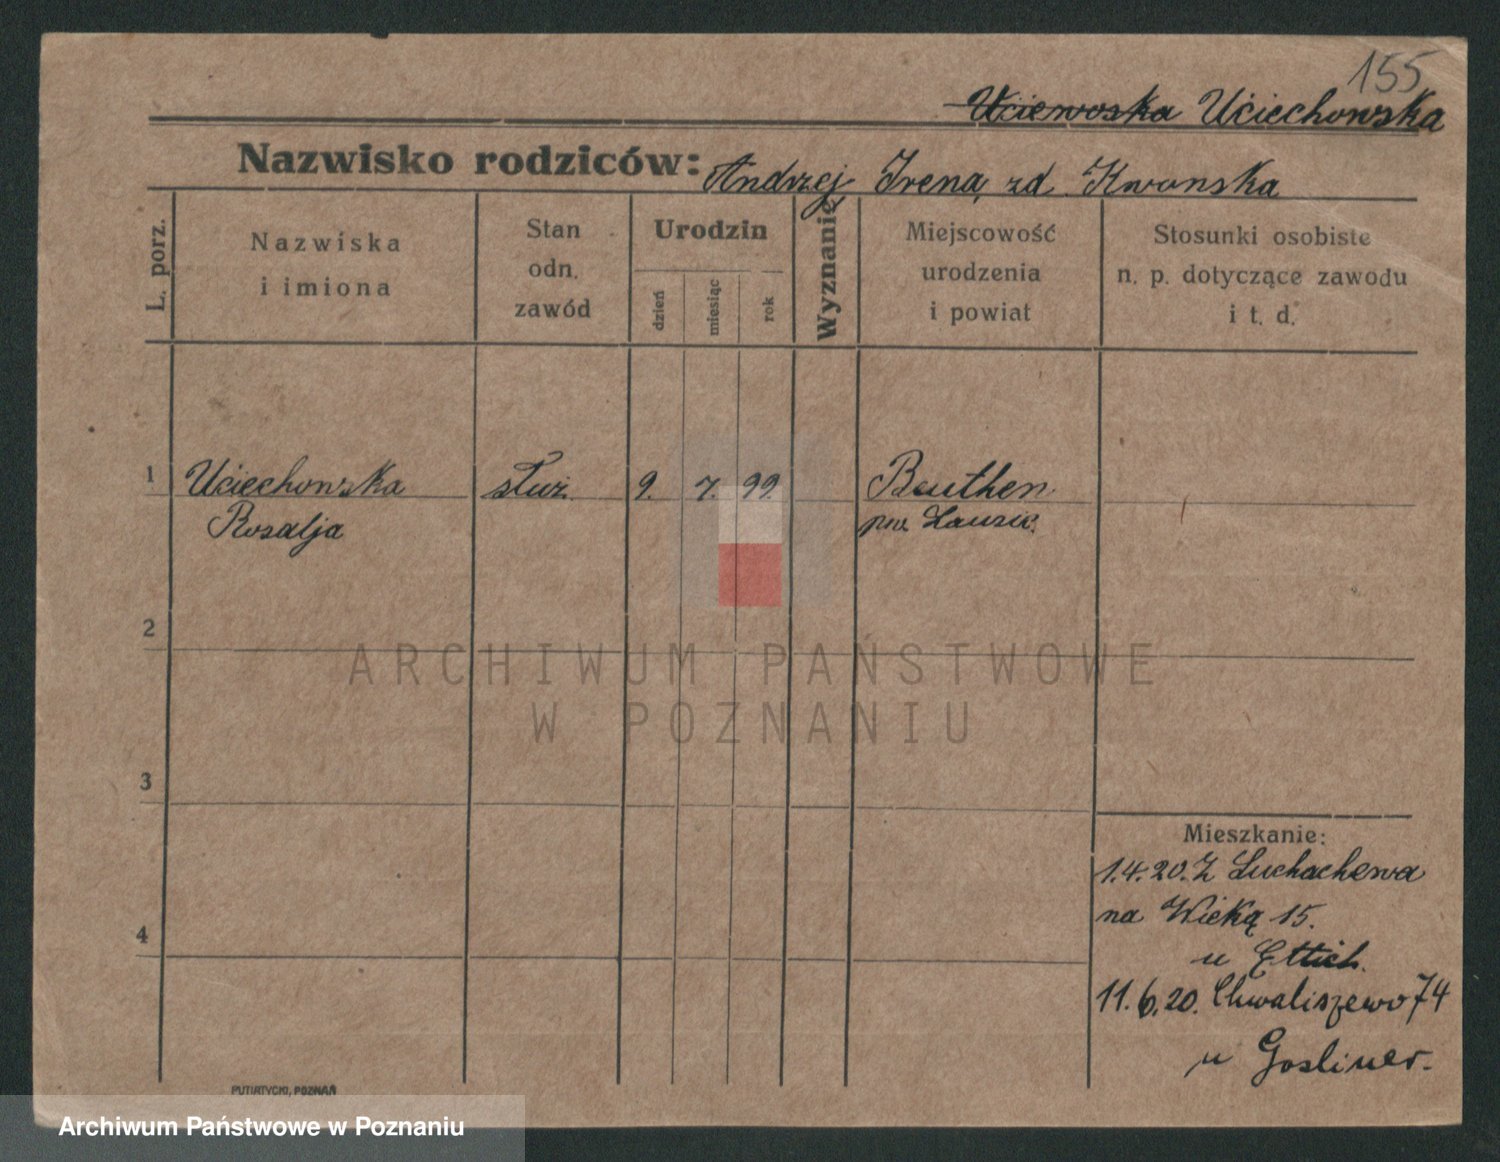 155
Uciewoska Uciechowska
Nazwisko rodziców: Andrzej, Irena, zd. Kwonska
L. porz.
Nazwiska
i imiona
Stan
odn.
zawód
Urodzin
dzień
miesiąc
rok
Wyznanie
Miejscowość
urodzenia
i powiat
Stosunki osobiste
n. p. dotyczące zawodu
i t. d.
1 Uciechowska służ. 9. 7. 99. Beuthen
Rosalja pow.
2
ARCHIWUM PAŃSTWOWE
W POZNANIU
3
Mieszkanie:
1.4.20. Z
na 15.
4
u Ettich.
11.6.20. Chwaliszewo 74
u Gosliner.
PUTIATYCKI, POZNAŃ
Archiwum Państwowe w Poznaniu